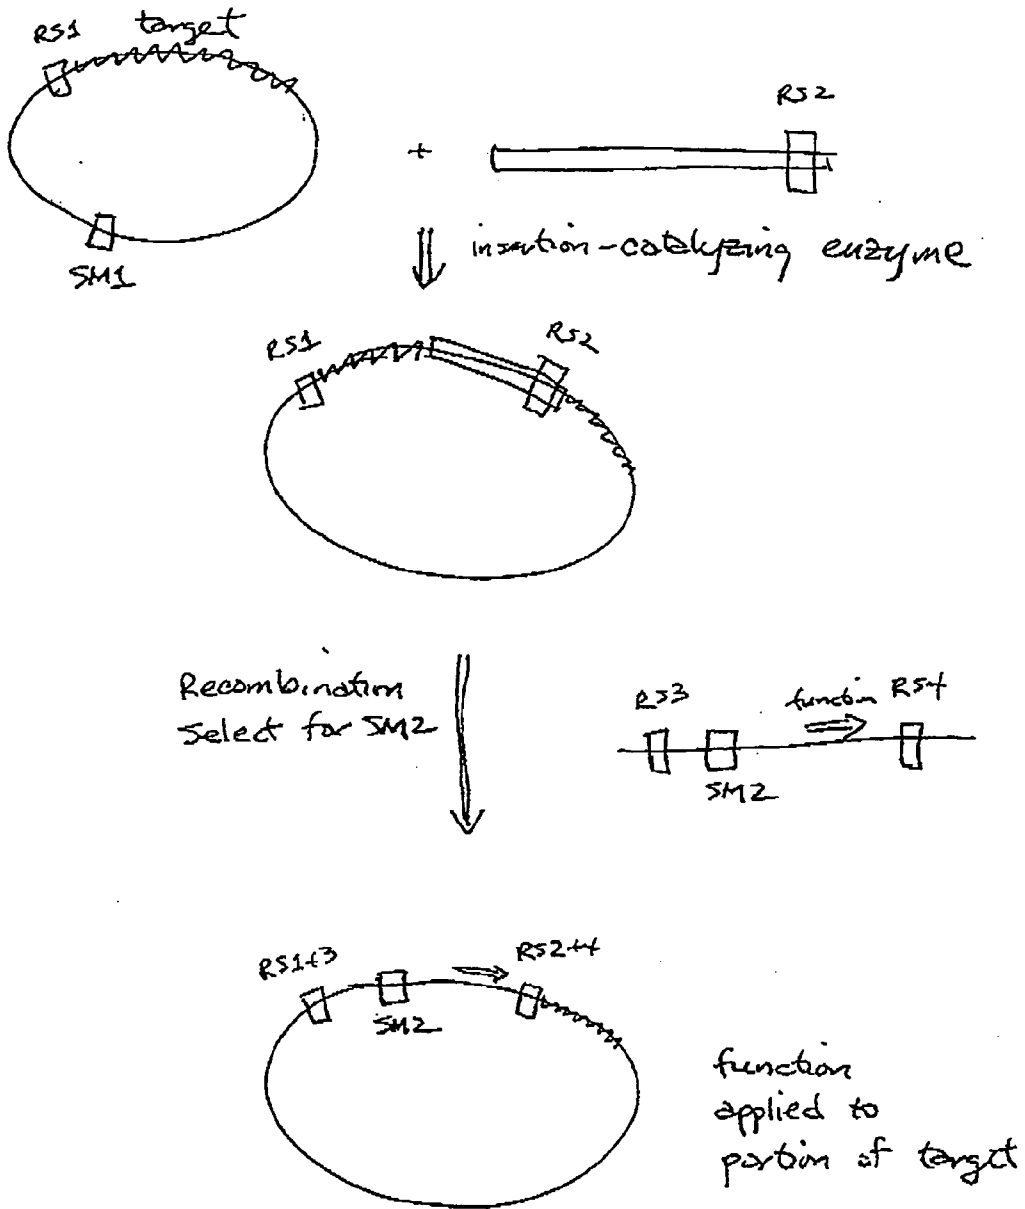 RS1
target
RS2
+
SM1
insertion-catalyzing enzyme
RS1
RS2
Recombination
Select for SM2
RS3
function
RS4
SM2
RS1+3
RS2+4
SM2
function
applied to
portion of target